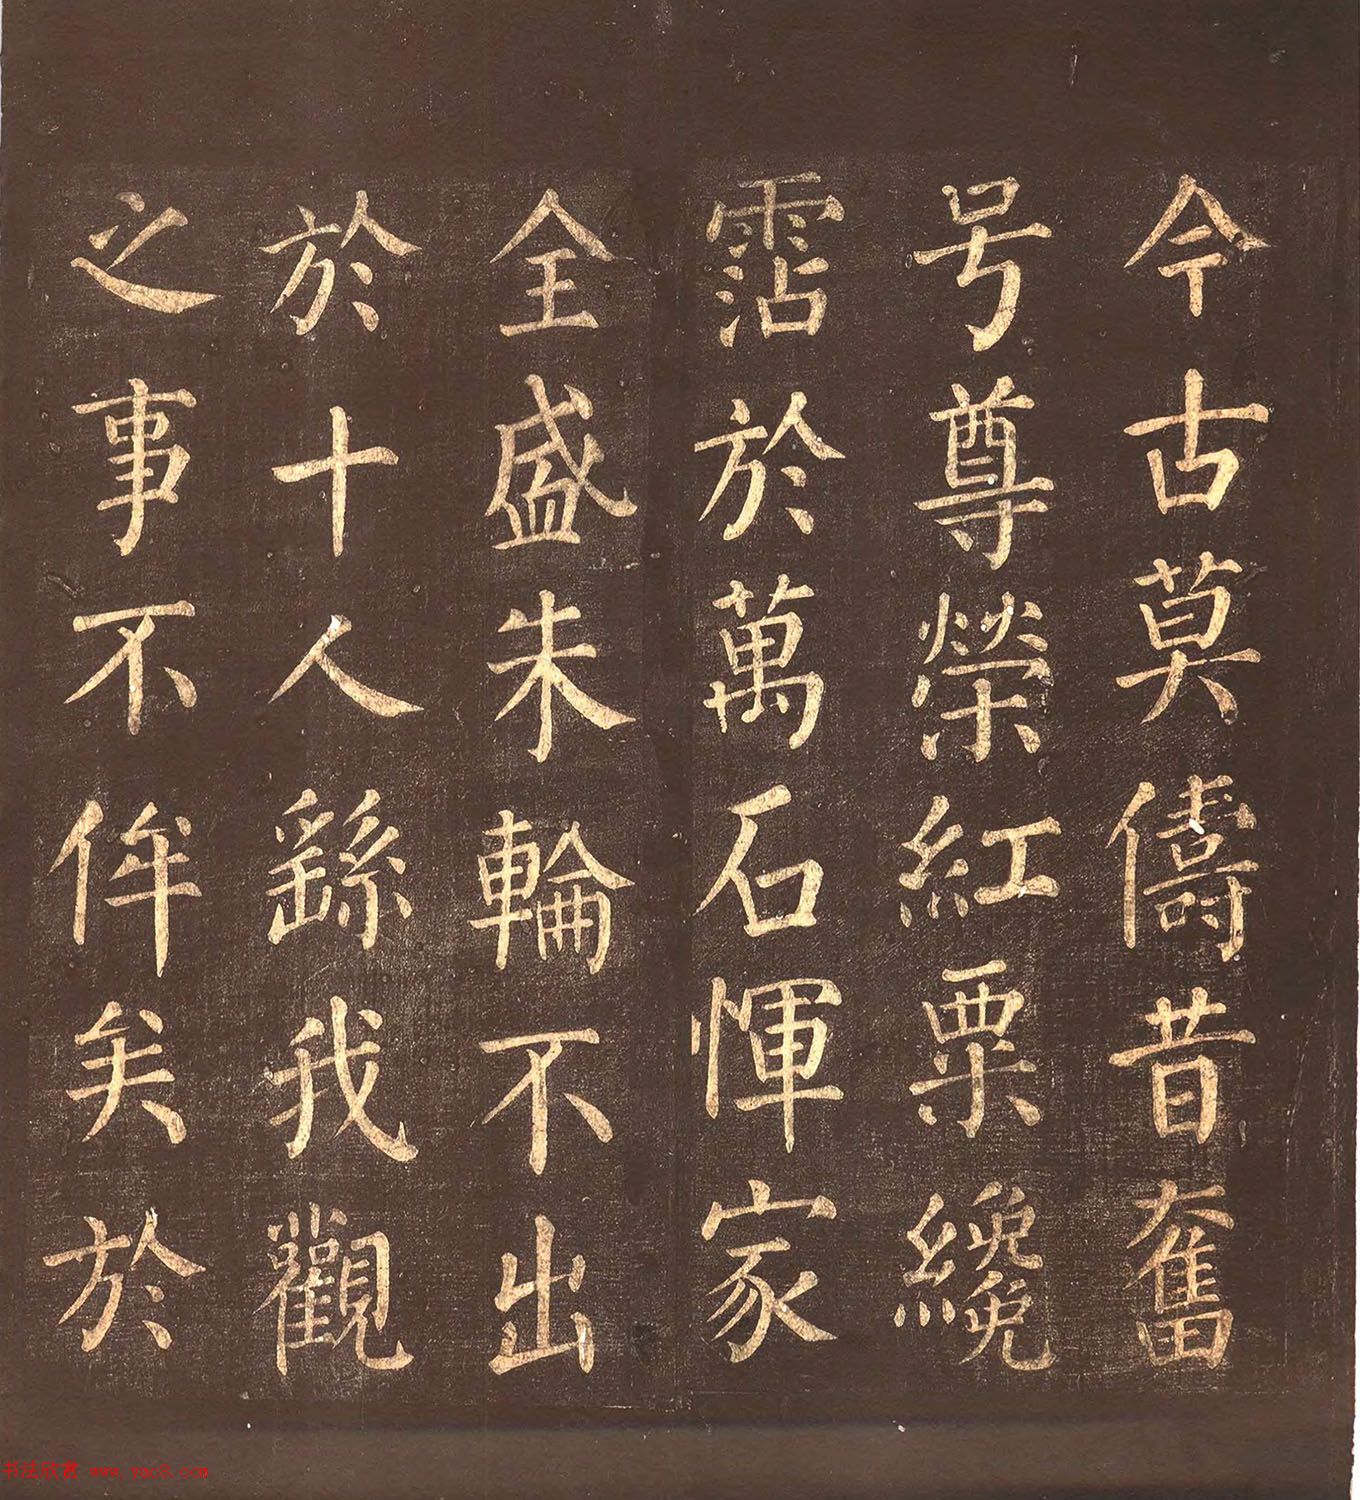 今古莫儔昔奮
号尊榮紅粟纔
霑於萬石惲家
全盛朱輪不出
於十人繇我觀
之事不侔矣於
书法欣赏 www.yac8.com